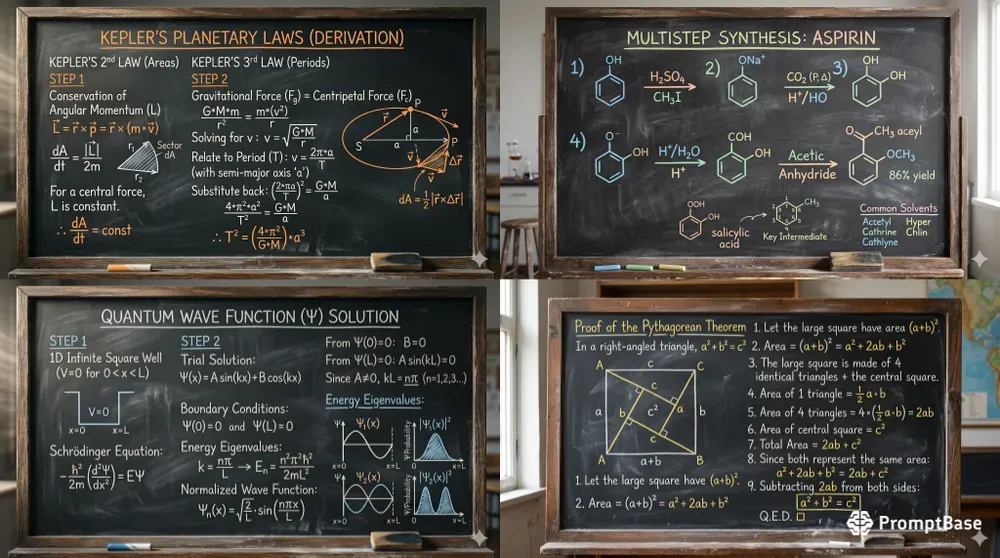 KEPLER'S PLANETARY LAWS (DERIVATION)
KEPLER'S 2nd LAW (Areas)
STEP 1
Conservation of
Angular Momentum (L)
L⃗ = r⃗ × p⃗ = r⃗ × (m*v⃗)
dA/dt = |L⃗|/2m
Sector
dA
r₁
r₂
For a central force,
L is constant.
∴ dA/dt = const
KEPLER'S 3rd LAW (Periods)
STEP 2
Gravitational Force (Fg) = Centripetal Force (Fc)
G*M*m/r² = m*(v²)/r
Solving for v: v = √(G*M/r)
Relate to Period (T): v = 2π*a/T
(with semi-major axis 'a')
Substitute back: (2*πa/T)² = G*M/a
4*π²*a²/T² = G*M/a
∴ T² = (4*π²/G*M)*a³
P
r⃗
v⃗
S
a
a
P
v⃗
Δr⃗
v⃗
dA = 1/2 |r⃗×Δr⃗|
MULTISTEP SYNTHESIS: ASPIRIN
1)
OH
H₂SO₄
CH₃I
2)
ONa⁺
CO₂ (P,Δ)
H⁺/HO
3)
OH
OH
4)
O⁻
OH
H⁺/H₂O
H⁺
COH
OH
Acetic
Anhydride
O
CH₃ aceyl
OCH₃
86% yield
OOH
OH
salicylic
acid
CH₃
Key Intermediate
Common Solvents
Acetyl Hyper
Cathrine Chlin
Cathlyne
QUANTUM WAVE FUNCTION (Ψ) SOLUTION
STEP 1
1D Infinite Square Well
(V=0 for 0<x<L)
V=0
x=0 x=L
Schrödinger Equation:
-ħ²/2m (d²Ψ/dx²) = EΨ
STEP 2
Trial Solution:
Ψ(x) = A sin(kx) + B cos(kx)
Boundary Conditions:
Ψ(0)=0 and Ψ(L)=0
Energy Eigenvalues:
k = nπ/L → Eₙ = n²π²ħ²/2mL²
Normalized Wave Function:
Ψₙ(x) = √(2/L) · sin(nπx/L)
From Ψ(0)=0: B=0
From Ψ(L)=0: A sin(kL)=0
Since A≠0, kL = nπ (n=1,2,3...)
Energy Eigenvalues:
Ψ Ψ₁(x)
x=0 x=L
Probability |Ψ₁(x)|²
x=0 x=L
Ψ Ψ₂(x)
x=0 x=L
Probability |Ψ₂(x)|²
x=0 x=L
Proof of the Pythagorean Theorem
In a right-angled triangle, a²+b²=c²
A c C
c
a b c² a b
c
A a+b B
1. Let the large square have (a+b)².
2. Area = (a+b)² = a²+2ab+b²
1. Let the large square have area (a+b)².
2. Area = (a+b)² = a²+2ab+b²
3. The large square is made of 4
identical triangles + the central square.
4. Area of 1 triangle = 1/2 a·b
5. Area of 4 triangles = 4*(1/2 a·b) = 2ab
6. Area of central square = c²
7. Total Area = 2ab + c²
8. Since both represent the same area:
a²+2ab+b² = 2ab+c²
9. Subtracting 2ab from both sides:
a²+b² = c²
Q.E.D. □
PromptBase